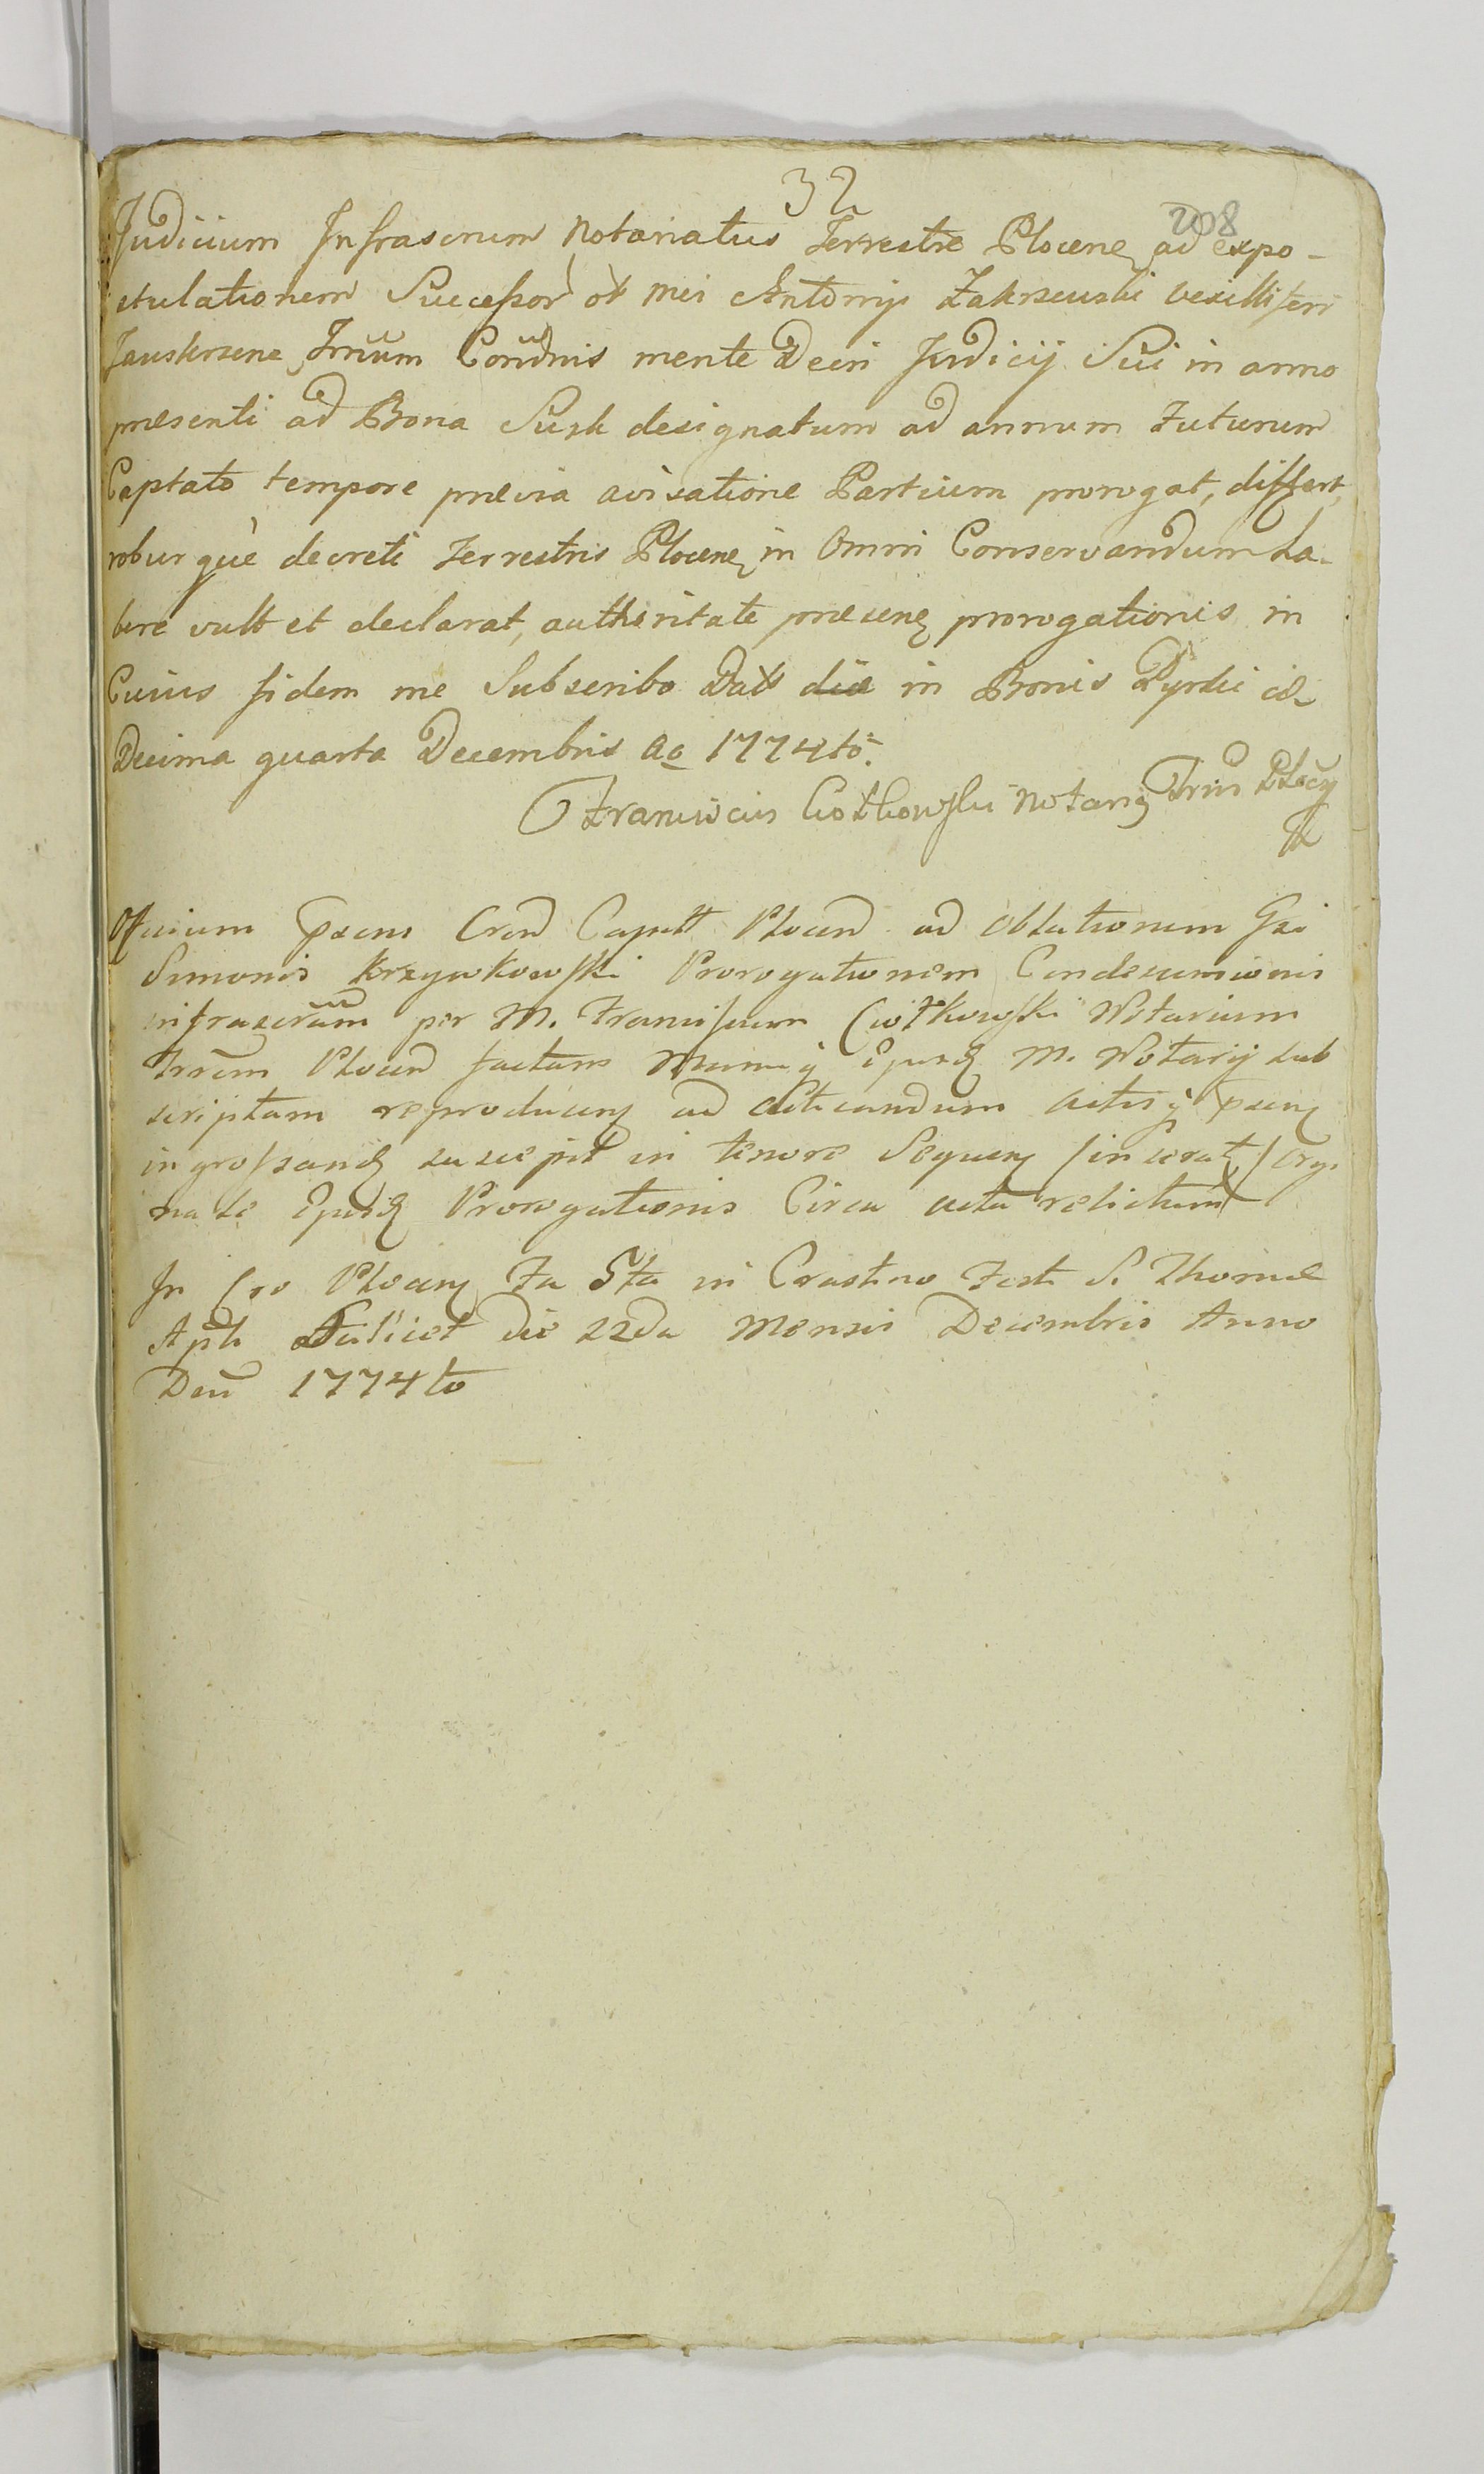 32
208
Judicium Infrascrum Notariatus Terrestre Plocen ad expo-
stulationem Successor M Antonij Zakrzewski Vexilliferi
Trium Condnis mente Decri Judicij Sui in anno
presenti ad Bona Susk designatum ad annum Futurum
Captato tempore previa avisatione Partium prorogat, differt,
roburque decreti Terrestris Plocen in Omni Conservandum ha-
bere vult et declarat, authoritate presen prorogationis in
Cuius fidem me Subscribo Datt die in Bonis
Decima quarta Decembris Ao 1774to.
Franciscus Ciołkowski Notarig Trris Płocy
Officium Praens Cren Capitt Plocen ad oblationem Gsi
Simonis Krzywkowski Prorogationem Condescensionis
infrascram per M. Franciscum Ciołkowski Notarium
Trrem Plocen factam Manuq Ejusd M. Notarij sub
scriptam reproducen ad acticandum actisq praen
ingrossand suscepit in tenore Sequen /inserat/ Orgi
nale Ejusd Prorogationis Circa acta relictum
In Cro Plocen Fa 5ta in Crastino Festi S. Thomæ
Apli Scilicet die 22da Mensis Decembris Anno
Dni 1774to